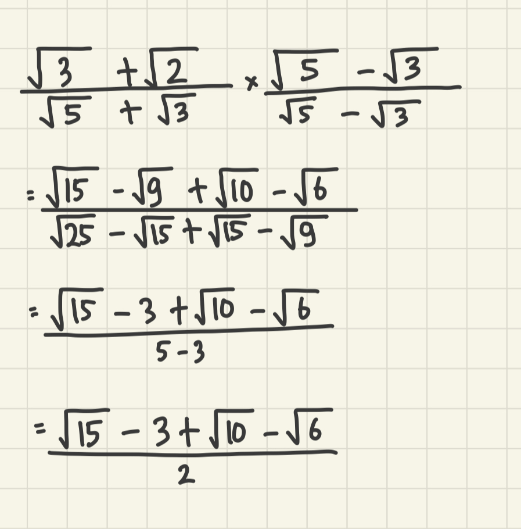 (√3 + √2)/(√5 + √3) × (√5 - √3)/(√5 - √3)
= (√15 - √9 + √10 - √6)/(√25 - √15 + √15 - √9)
= (√15 - 3 + √10 - √6)/(5 - 3)
= (√15 - 3 + √10 - √6)/2